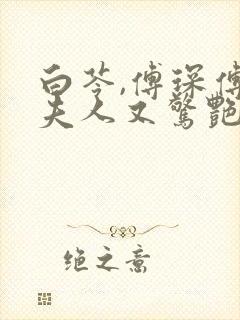 白苓,傅琛傅
夫人又驚艷
绝之意